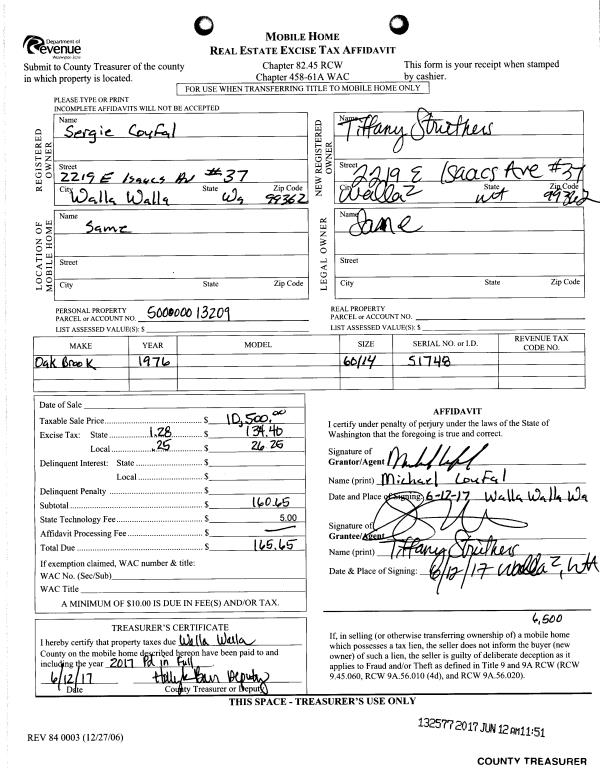 Department of
Revenue
Washington State
MOBILE HOME
REAL ESTATE EXCISE TAX AFFIDAVIT
Submit to County Treasurer of the county
in which property is located.
Chapter 82.45 RCW
Chapter 458-61A WAC
This form is your receipt when stamped
by cashier.
FOR USE WHEN TRANSFERRING TITLE TO MOBILE HOME ONLY
PLEASE TYPE OR PRINT
INCOMPLETE AFFIDAVITS WILL NOT BE ACCEPTED
REGISTERED OWNER
Name
Sergie Coufal
Street
2219 E Isaacs Av #37
City State Zip Code
Walla Walla Wa 99362
NEW REGISTERED OWNER
Name
Tiffany Struthers
Street
2219 E Isaacs Ave #37
City State Zip Code
Walla2 WA 99362
LOCATION OF MOBILE HOME
Name
Same
Street
City State Zip Code
LEGAL OWNER
Name
Same
Street
City State Zip Code
PERSONAL PROPERTY
PARCEL or ACCOUNT NO. 500000013209
LIST ASSESSED VALUE(S): $
REAL PROPERTY
PARCEL or ACCOUNT NO.
LIST ASSESSED VALUE(S): $
MAKE YEAR MODEL SIZE SERIAL NO. or I.D. REVENUE TAX CODE NO.
Oak Brook 1976 60/14 S1748
Date of Sale
Taxable Sale Price $ 10,500.00
Excise Tax: State 1.28 $ 134.40
Local .25 $ 26.25
Delinquent Interest: State $
Local $
Delinquent Penalty $
Subtotal $ 160.65
State Technology Fee $ 5.00
Affidavit Processing Fee $
Total Due $ 165.65
If exemption claimed, WAC number & title:
WAC No. (Sec/Sub)
WAC Title
A MINIMUM OF $10.00 IS DUE IN FEE(S) AND/OR TAX.
AFFIDAVIT
I certify under penalty of perjury under the laws of the State of
Washington that the foregoing is true and correct.
Signature of
Grantor/Agent
Name (print) Michael Coufal
Date and Place of Signing: 6-12-17 Walla Walla Wa
Signature of
Grantee/Agent
Name (print) Tiffany Struthers
Date & Place of Signing: 6/12/17 Walla2, WA
TREASURER'S CERTIFICATE
I hereby certify that property taxes due Walla Walla
County on the mobile home described hereon have been paid to and
including the year 2017 Pd in Full
6/12/17 Deputy
Date County Treasurer or Deputy
6,500
If, in selling (or otherwise transferring ownership of) a mobile home
which possesses a tax lien, the seller does not inform the buyer (new
owner) of such a lien, the seller is guilty of deliberate deception as it
applies to Fraud and/or Theft as defined in Title 9 and 9A RCW (RCW
9.45.060, RCW 9A.56.010 (4d), and RCW 9A.56.020).
THIS SPACE - TREASURER'S USE ONLY
132577 2017 JUN 12 AM 11:51
REV 84 0003 (12/27/06)
COUNTY TREASURER